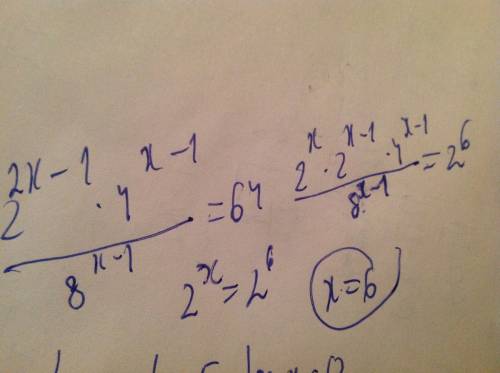 2^{2x-1} · 4^{x-1} / 8^{x-1} = 64
2^x · 2^{x-1} · 4^{x-1} / 8^{x-1} = 2^6
2^x = 2^6
x = 6